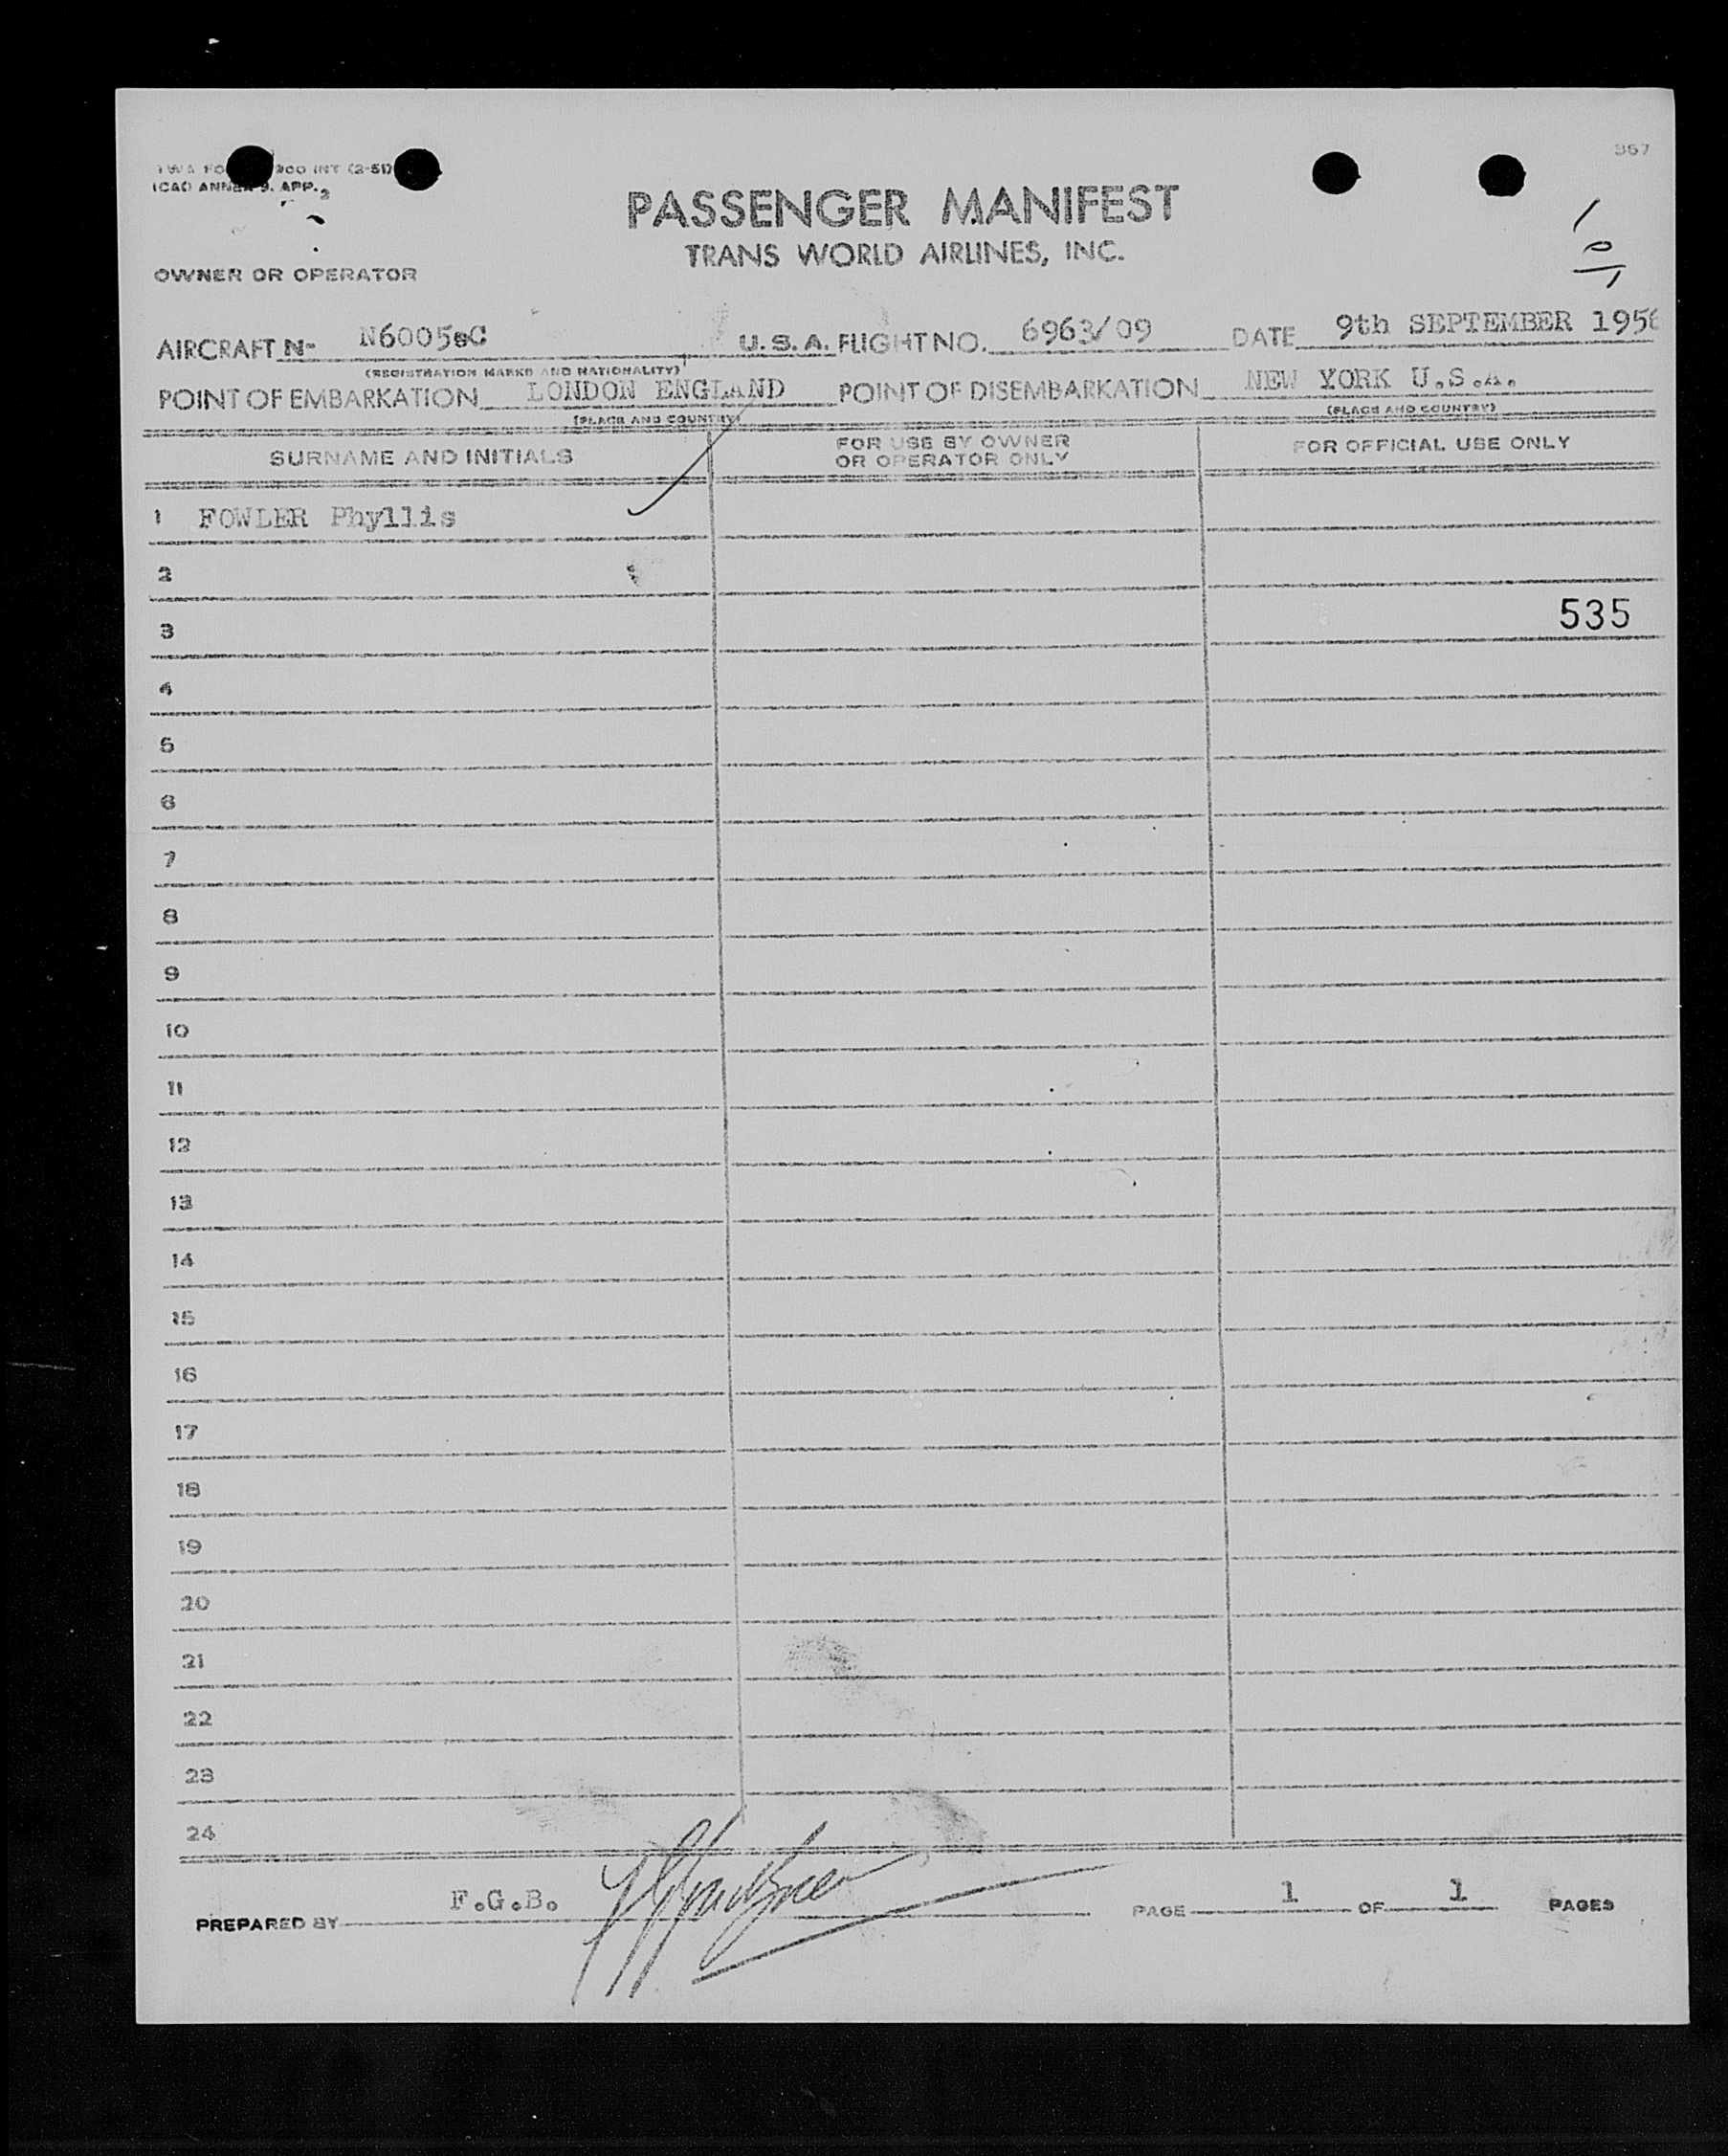 367
TWA FO 200 INT (2-51)
ICAO ANNEX 9. APP. 2
PASSENGER MANIFEST
TRANS WORLD AIRLINES, INC.
1
0/1
OWNER OR OPERATOR
AIRCRAFT N- N6005sC U.S.A. FLIGHT NO. 6963/09 DATE 9th SEPTEMBER 1956
(REGISTRATION MARKS AND NATIONALITY)
POINT OF EMBARKATION LONDON ENGLAND POINT OF DISEMBARKATION NEW YORK U.S.A.
(PLACE AND COUNTRY) (PLACE AND COUNTRY)
SURNAME AND INITIALS FOR USE BY OWNER OR OPERATOR ONLY FOR OFFICIAL USE ONLY
1 FOWLER Phyllis
2
3 535
4
5
6
7
8
9
10
11
12
13
14
15
16
17
18
19
20
21
22
23
24
PREPARED BY F.G.B. PAGE 1 OF 1 PAGES